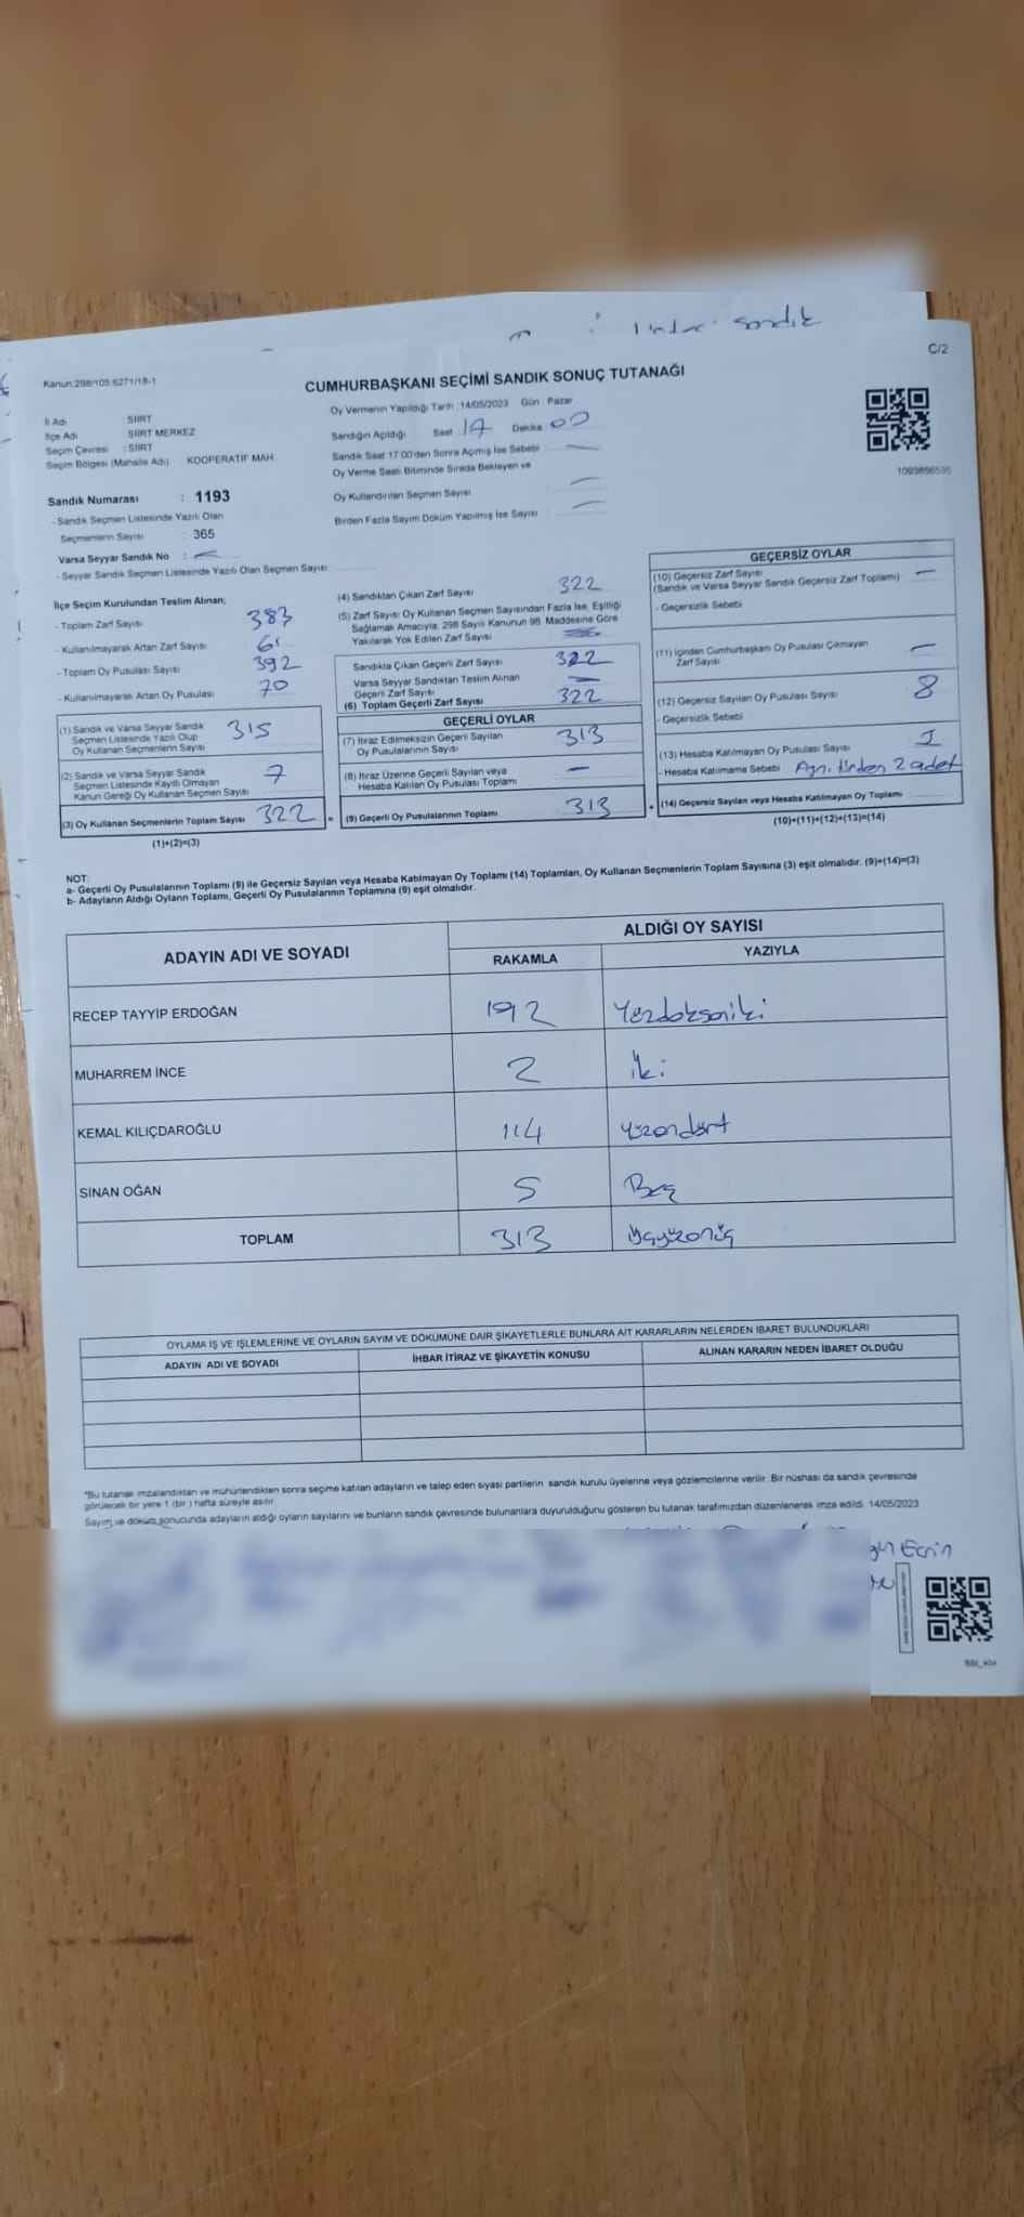 lindeı sandık
C/2
Kanun:298/105:6271/18-1
CUMHURBAŞKANI SEÇİMİ SANDIK SONUÇ TUTANAĞI
İl Adı SİİRT
İlçe Adı SİİRT MERKEZ
Seçim Çevresi : SİİRT
Seçim Bölgesi (Mahalle Adı) KOOPERATİF MAH.
Oy Vermenin Yapıldığı Tarih : 14/05/2023 Gün : Pazar
Sandığın Açıldığı Saat : 17 Dakika : 00
Sandık Saat 17:00'den Sonra Açılmış İse Sebebi
Oy Verme Saati Bitiminde Sırada Bekleyen ve
Oy Kullandırılan Seçmen Sayısı
Birden Fazla Sayım Döküm Yapılmış İse Sayısı
1093898595
Sandık Numarası : 1193
- Sandık Seçmen Listesinde Yazılı Olan
Seçmenlerin Sayısı : 365
Varsa Seyyar Sandık No : —
- Seyyar Sandık Seçmen Listesinde Yazılı Olan Seçmen Sayısı
İlçe Seçim Kurulundan Teslim Alınan;
- Toplam Zarf Sayısı 383
- Kullanılmayarak Artan Zarf Sayısı
- Toplam Oy Pusulası Sayısı 392
- Kullanılmayarak Artan Oy Pusulası 70
(1) Sandık ve Varsa Seyyar Sandık
Seçmen Listesinde Yazılı Olup
Oy Kullanan Seçmenlerin Sayısı 315
(2) Sandık ve Varsa Seyyar Sandık
Seçmen Listesinde Kayıtlı Olmayan
Kanun Gereği Oy Kullanan Seçmen Sayısı 7
(3) Oy Kullanan Seçmenlerin Toplam Sayısı 322
(1)+(2)=(3)
(4) Sandıktan Çıkan Zarf Sayısı 322
(5) Zarf Sayısı Oy Kullanan Seçmen Sayısından Fazla İse, Eşitliği
Sağlamak Amacıyla, 298 Sayılı Kanunun 98. Maddesine Göre
Yakılarak Yok Edilen Zarf Sayısı
Sandıkta Çıkan Geçerli Zarf Sayısı 322
Varsa Seyyar Sandıktan Teslim Alınan
Geçerli Zarf Sayısı —
(6) Toplam Geçerli Zarf Sayısı 322
GEÇERLİ OYLAR
(7) İtiraz Edilmeksizin Geçerli Sayılan
Oy Pusulalarının Sayısı 313
(8) İtiraz Üzerine Geçerli Sayılan veya
Hesaba Katılan Oy Pusulası Toplamı —
(9) Geçerli Oy Pusulalarının Toplamı 313
GEÇERSİZ OYLAR
(10) Geçersiz Zarf Sayısı —
(Sandık ve Varsa Seyyar Sandık Geçersiz Zarf Toplamı)
- Geçersizlik Sebebi
(11) İçinden Cumhurbaşkanı Oy Pusulası Çıkmayan
Zarf Sayısı —
(12) Geçersiz Sayılan Oy Pusulası Sayısı 8
- Geçersizlik Sebebi
(13) Hesaba Katılmayan Oy Pusulası Sayısı 1
- Hesaba Katılmama Sebebi Aynı türden 2 adet
(14) Geçersiz Sayılan veya Hesaba Katılmayan Oy Toplamı
(10)+(11)+(12)+(13)=(14)
NOT:
a- Geçerli Oy Pusulalarının Toplamı (9) ile Geçersiz Sayılan veya Hesaba Katılmayan Oy Toplamı (14) Toplamları, Oy Kullanan Seçmenlerin Toplam Sayısına (3) eşit olmalıdır. (9)+(14)=(3)
b- Adayların Aldığı Oyların Toplamı, Geçerli Oy Pusulalarının Toplamına (9) eşit olmalıdır.
ADAYIN ADI VE SOYADI
ALDIĞI OY SAYISI
RAKAMLA YAZIYLA
RECEP TAYYİP ERDOĞAN 192 Yüzdoksaniki
MUHARREM İNCE 2 İki
KEMAL KILIÇDAROĞLU 114 Yüzondört
SİNAN OĞAN 5 Beş
TOPLAM 313 Üçyüzonüç
OYLAMA İŞ VE İŞLEMLERİNE VE OYLARIN SAYIM VE DÖKÜMÜNE DAİR ŞİKAYETLERLE BUNLARA AİT KARARLARIN NELERDEN İBARET BULUNDUKLARI
ADAYIN ADI VE SOYADI İHBAR İTİRAZ VE ŞİKAYETİN KONUSU ALINAN KARARIN NEDEN İBARET OLDUĞU
*Bu tutanak imzalandıktan ve mühürlendikten sonra seçime katılan adayların ve talep eden siyasi partilerin sandık kurulu üyelerine veya gözlemcilerine verilir. Bir nüshası da sandık çevresinde
görülecek bir yere 1 (bir) hafta süreyle asılır.
Sayım ve döküm sonucunda adayların aldığı oyların sayılarını ve bunların sandık çevresinde bulunanlara duyurulduğunu gösteren bu tutanak tarafımızdan düzenlenerek imza edildi. 14/05/2023